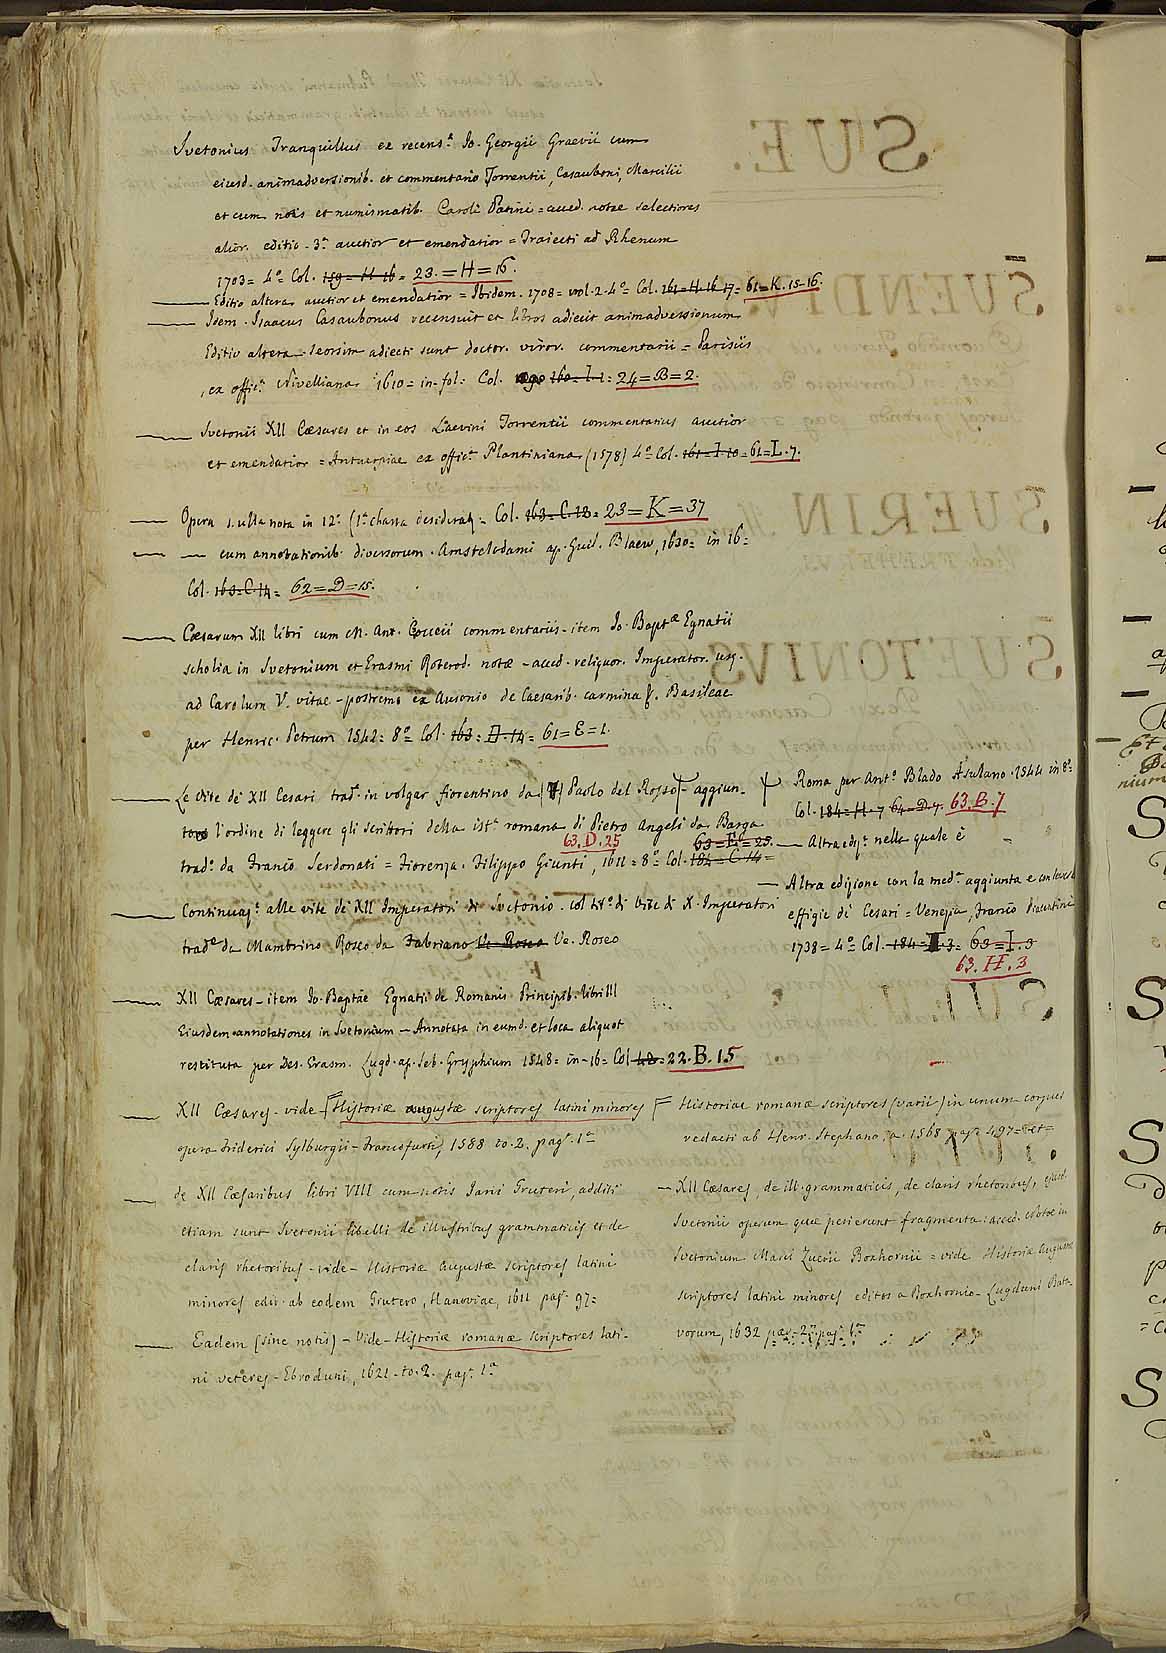 Svetonius Tranquillus ex recens.e Io. Georgii Graevii cum
eiusd. animadversionib. et commentario Torrentii, Casauboni, Marcilii
et cum notis et numismatib. Caroli Patini = acced. notae selectiores
alior. editio 3.a auctior et emendatior = Traiecti ad Rhenum
1703 = 4.o Col. 159 = H 16 = 23. = H = 16.
Editio altera auctior et emendatior = Ibidem. 1708 = vol. 2. 4.o = Col. 161 = H. 16 17 = 61 = K. 15-16.
Idem. Isaacus Casaubonus recensuit et libros adiecit animadversionum
Editio altera. Seorsim adiecti sunt doctor. viror. commentarii = Parisiis
ex offic.a Nivelliana 1610 = in-fol: Col. 160 = I. 1 = 24 = B = 2.
Svetonii XII Cæsares et in eos Laevini Torrentii commentarius auctior
et emendatior = Antuerpiae ex offic.a Plantiniana (1578) 4.o Col. 161 = I 10 = 61 = L. 7.
Opera s. ulla nota in 12.o (1.a charta desiderat) = Col. 163 = C. 12 = 23 = K = 37
cum annotationib. diversorum. Amstelodami ap. Guil. Blaew, 1630 = in 16 =
Col. 163 = C. 14 = 62 = D = 15.
Cæsarum XII libri cum M. Ant. Coccii commentariis - item Io. Baptæ Egnatii
scholia in Svetonium et Erasmi Roterod. notæ - acced. reliquor. Imperator. usq.
ad Carolum V. vitae - postremo ex Ausonio de Caesarib. carmina &. Basileae
per Henric. Petrum 1542 = 8.o Col. 163 = D. 14 = 61 = E = 1.
Le vite de XII Cesari trad.e in volgar fiorentino da Paolo del Rosso - aggiun-
tovi l'ordine di leggere gli scrittori della ist.a romana di Pietro Angeli da Barga
63. D. 25 63 = E = 25.
trad.o da Franco Serdonati = Fiorenza. Filippo Giunti, 1611 = 8.o Col. 184 = C. 14 =
Continuaz.e alle vite de XII Imperatori di Svetonio. col tit.o di Vite di X. Imperatori
trad.e da Mambrino Roseo da Fabriano Ve. Roseo Ve. Roseo
XII Cæsares - item Io. Baptæe Egnatii de Romanis Principib. libri III
Eiusdem annotationes in Svetonium - Annotata in eumd. et loca aliquot
restituta per Des. Erasm. Lugd. ap. Seb. Gryphium 1548 = in-16 = Col 22. B. 15
XII Cæsares - vide Historiæ augustæ scriptores latini minores
opera Friderici Sylburgii - Francofurti, 1588 to. 2. pag. 1.a
de XII Cæsaribus libri VIII cum notis Jani Gruteri, additi
etiam sunt Svetonii libelli de illustribus grammaticis et de
claris rhetoribus - vide - Historiæ Augustæ scriptores latini
minores editi ab eodem Grutero, Hanoviae, 1611 pag. 97 =
Eadem (sine notis) - Vide - Historiæ romanæ scriptores lati-
ni veteres - Ebroduni, 1621 - to. 2. pag. 1.a
Roma per Ant.o Blado Asulano. 1544 in 8.o
Col. 184 = H. 7 64 = D. 7. 63. B. 7
Altra ediz.e nella quale è
Altra edizione con la med.a aggiunta e con le vere
effigie di Cesari = Venezia, Franco Piacentini
1738 = 4.o Col. 184 = I. 3 = 63 = I. 3
63. H. 3
Historiae romanæ scriptores (varii) in unum corpus
redacti ab Henr. Stephano, a. 1568 pag. 497 = et =
XII Cæsares, de ill. grammaticis, de claris rhetoribus, eiusd.
Svetonii operum quæ perierunt fragmenta: acced. Notæ in
Svetonium Marci Zuerii Boxhornii = vide Historiæ Augustæ
scriptores latini minores editos a Boxhornio - Lugduni Bata-
vorum, 1632 par. 2.a pag. 1.a